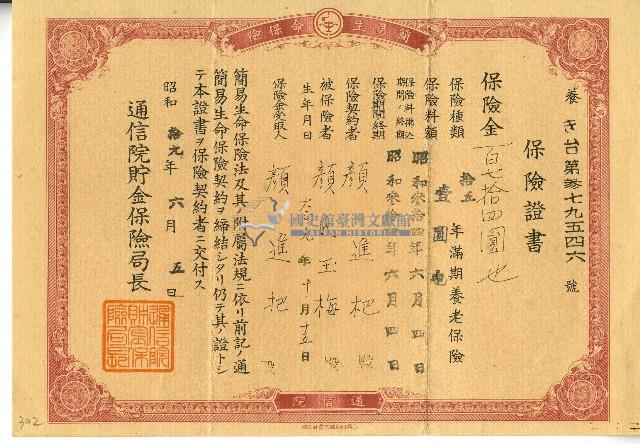 簡易生命保險
養き台第参七九五四六號
保險證書
保險金 百七拾四圓也
保險種類 拾五年滿期養老保險
保險料額 壹圓也
保險料拂込期間ノ終期 昭和参拾四年六月四日
保險期間終期 昭和参拾四年六月四日
保險契約者 顏進杷殿
被保險者 顏氏玉梅殿
生年月日 年十月十五日
保險金受取人 顏進杷殿
簡易生命保險法及其ノ附屬法規ニ依リ前記ノ通
簡易生命保險契約ヲ締結シタリ仍テ其ノ證トシ
テ本證書ヲ保險契約者ニ交付ス
昭和拾九年六月五日
通信院貯金保險局長
通信院貯金保險局長
通信院
國史館臺灣文獻館
TAIWAN HISTORICA
302